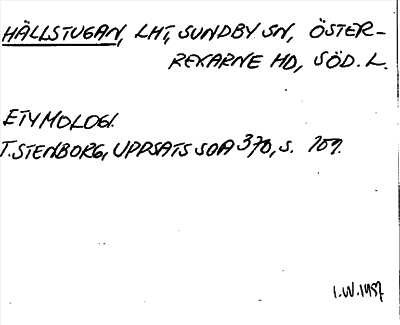 HÄLLSTUGAN, LHT, SUNDBY SN, ÖSTER-
REKARNE HD, SÖD. L.
ETYMOLOGI.
T. STENBORG, UPPSATS SOA 370, S. 107.
I.W. 1987